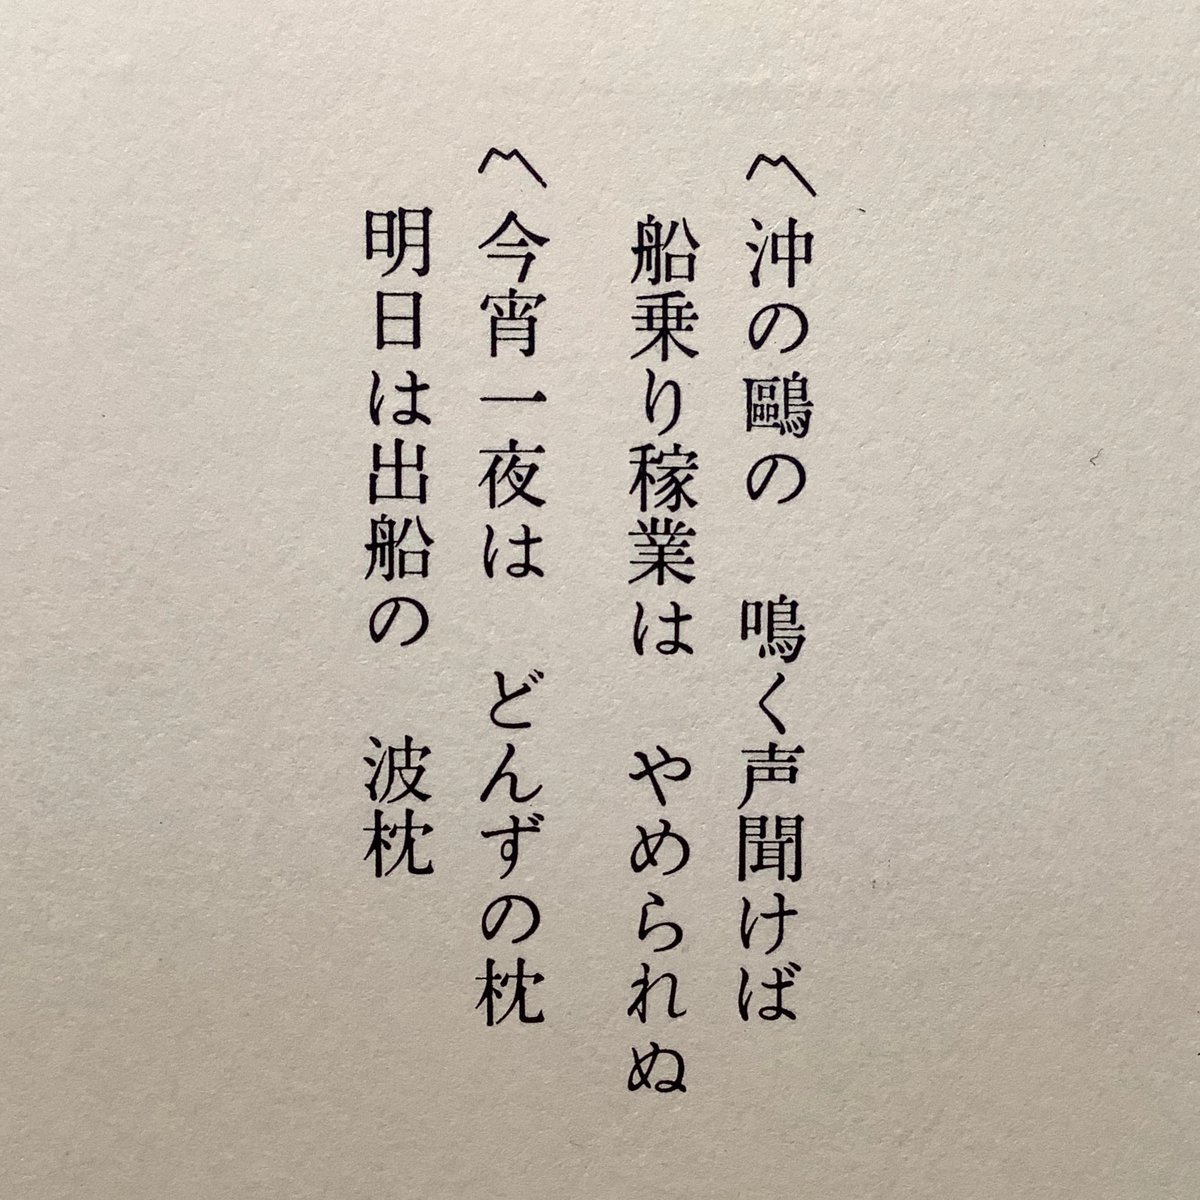 〽沖の鷗の　鳴く声聞けば
船乗り稼業は　やめられぬ
〽今宵一夜は　どんずの枕
明日は出船の　波枕